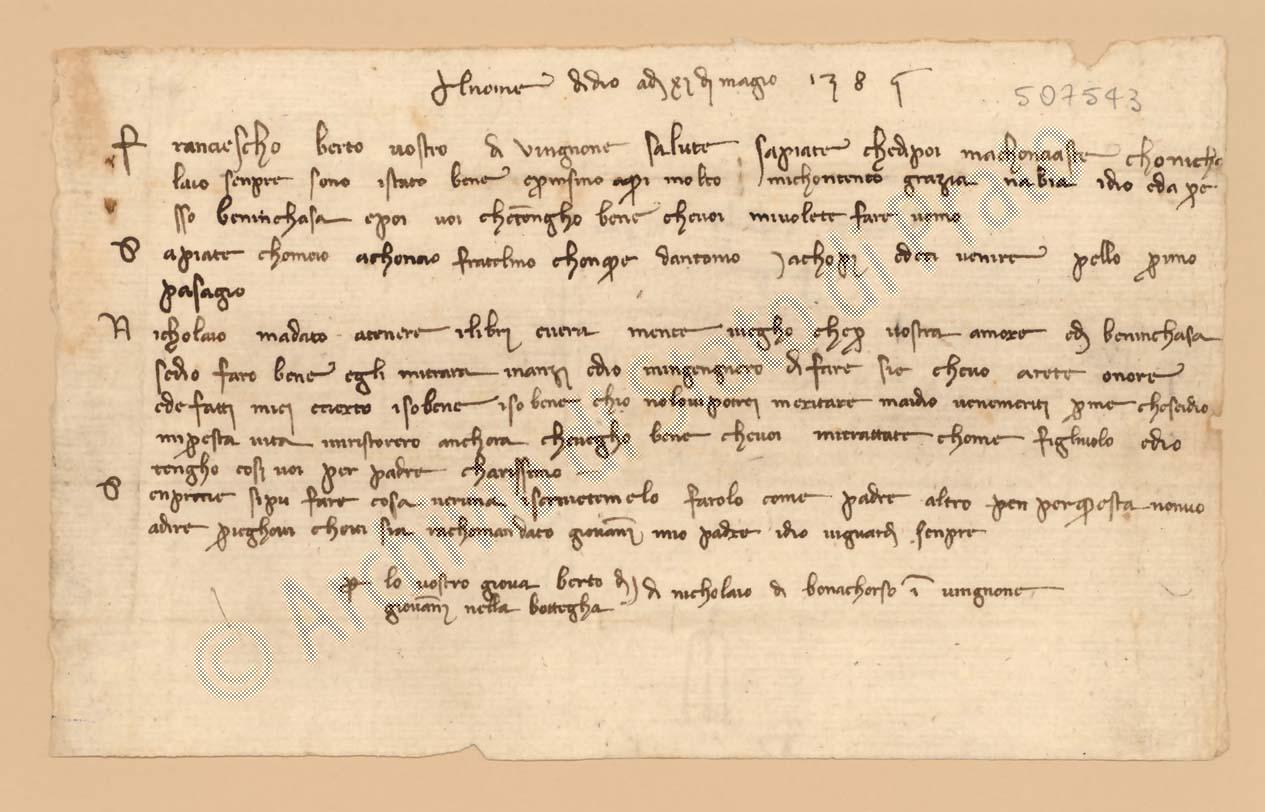 Al nome di dio adj xj di magio 1385
507543
Franciescho berto vostro di vingnone salute sapiate chedipoi machonciaste chonicho
laio senpre sono istato bene e molto michontento grazia nabia idio eda pe
sso beninchasa epoi voi chetengho bene chevoi mivolete fare uomo
Sapiate chomeio achoncio fratelmo dantonio jachopi edeci venire pello primo
pasagio
Nicholaio madato atenere ilibri evera mente vegho chepr vostra amore edj beninchasa
sedio faro bene egli mitrara inanzi edio mingengnero di fare sie chevo arete onore
ede fatti miei ecierto isobene isobene chio nolovi potrei meritare maidio venemeriti prme chesedio
mipresta vita miristorero anchora chevegho bene chevoi mitrattate chome figliuolo edio
tengho cosi voi per padre charissimo
Senpme sipu fare cosa veruna iscrivetemelo farolo come padre altro pen perquesta nonvo
adire prieghovi chevi sia rachomandato giovanni mio padre idio viguardi senpre
Pr lo vostro giova berto di di nicholaio di bonachorso in vingnone
giovanni nella bottegha
© Archivio di Stato di Prato